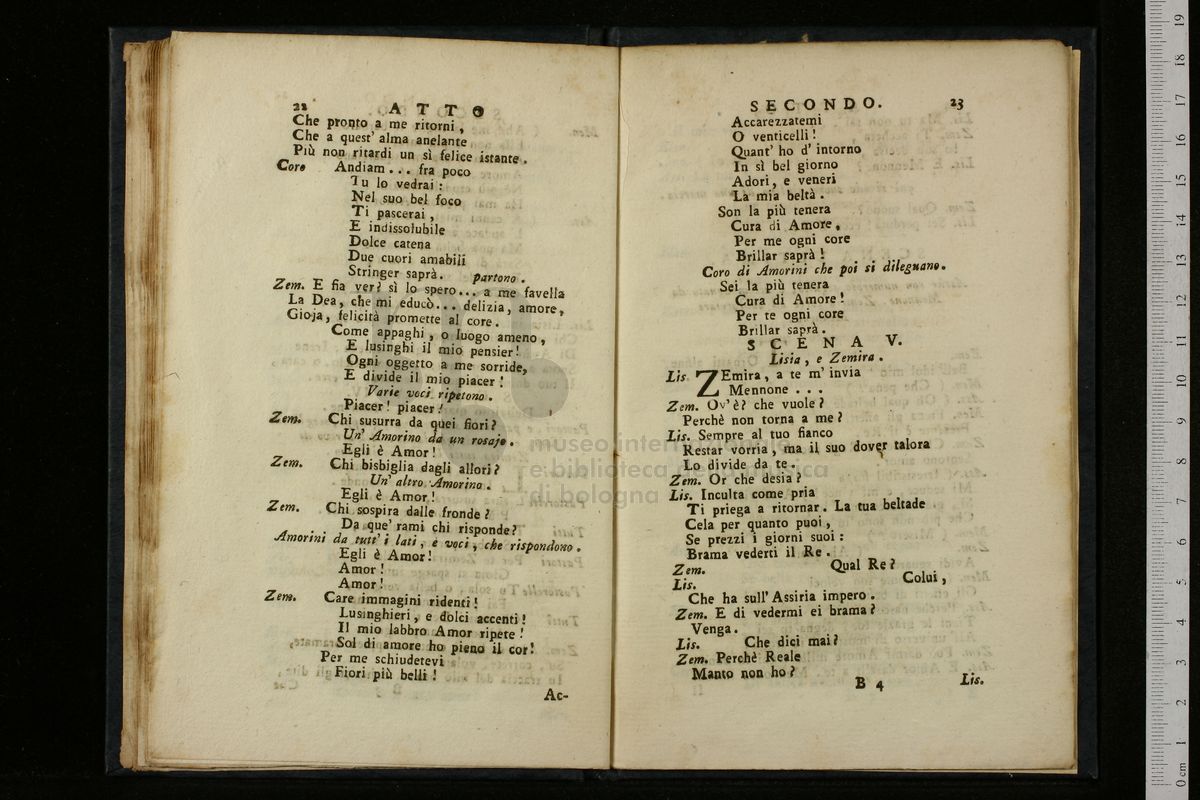 22 ATTO
Che pronto a me ritorni,
Che a quest' alma anelante
Più non ritardi un sì felice istante.
Coro Andiam... fra poco
Tu lo vedrai:
Nel suo bel foco
Ti pascerai,
E indissolubile
Dolce catena
Due cuori amabili
Stringer saprà. partono.
Zem. E fia ver? sì lo spero... a me favella
La Dea, che mi educò... delizia, amore,
Gioja, felicità promette al core.
Come appaghi, o luogo ameno,
E lusinghi il mio pensier!
Ogni oggetto a me sorride,
E divide il mio piacer!
Varie voci ripetono.
Piacer! piacer!
Zem. Chi susurra da quei fiori?
Un' Amorino da un rosajo.
Egli è Amor!
Zem. Chi bisbiglia dagli allori?
Un' altro Amorino.
Egli è Amor!
Zem. Chi sospira dalle fronde?
Da que' rami chi risponde?
Amorini da tutt' i lati, e voci, che rispondono.
Egli è Amor!
Amor!
Amor!
Zem. Care immagini ridenti!
Lusinghieri, e dolci accenti!
Il mio labbro Amor ripete!
Sol di amore ho pieno il cor!
Per me schiudetevi
Fiori più belli!
Ac-
SECONDO. 23
Accarezzatemi
O venticelli!
Quant' ho d' intorno
In sì bel giorno
Adori, e veneri
La mia beltà.
Son la più tenera
Cura di Amore,
Per me ogni core
Brillar saprà!
Coro di Amorini che poi si dileguano.
Sei la più tenera
Cura di Amore!
Per te ogni core
Brillar saprà.
SCENA V.
Lisia, e Zemira.
Lis. ZEmira, a te m' invia
Mennone...
Zem. Ov'è? che vuole?
Perchè non torna a me?
Lis. Sempre al tuo fianco
Restar vorria, ma il suo dover talora
Lo divide da te.
Zem. Or che desia?
Lis. Inculta come pria
Ti priega a ritornar. La tua beltade
Cela per quanto puoi,
Se prezzi i giorni suoi:
Brama vederti il Re.
Zem. Qual Re?
Lis. Colui,
Che ha sull' Assiria impero.
Zem. E di vedermi ei brama?
Venga.
Lis. Che dici mai?
Zem. Perchè Reale
Manto non ho?
B 4 Lis.
museo internazionale
e biblioteca della musica
di bologna
0 cm 1 2 3 4 5 6 7 8 9 10 11 12 13 14 15 16 17 18 19